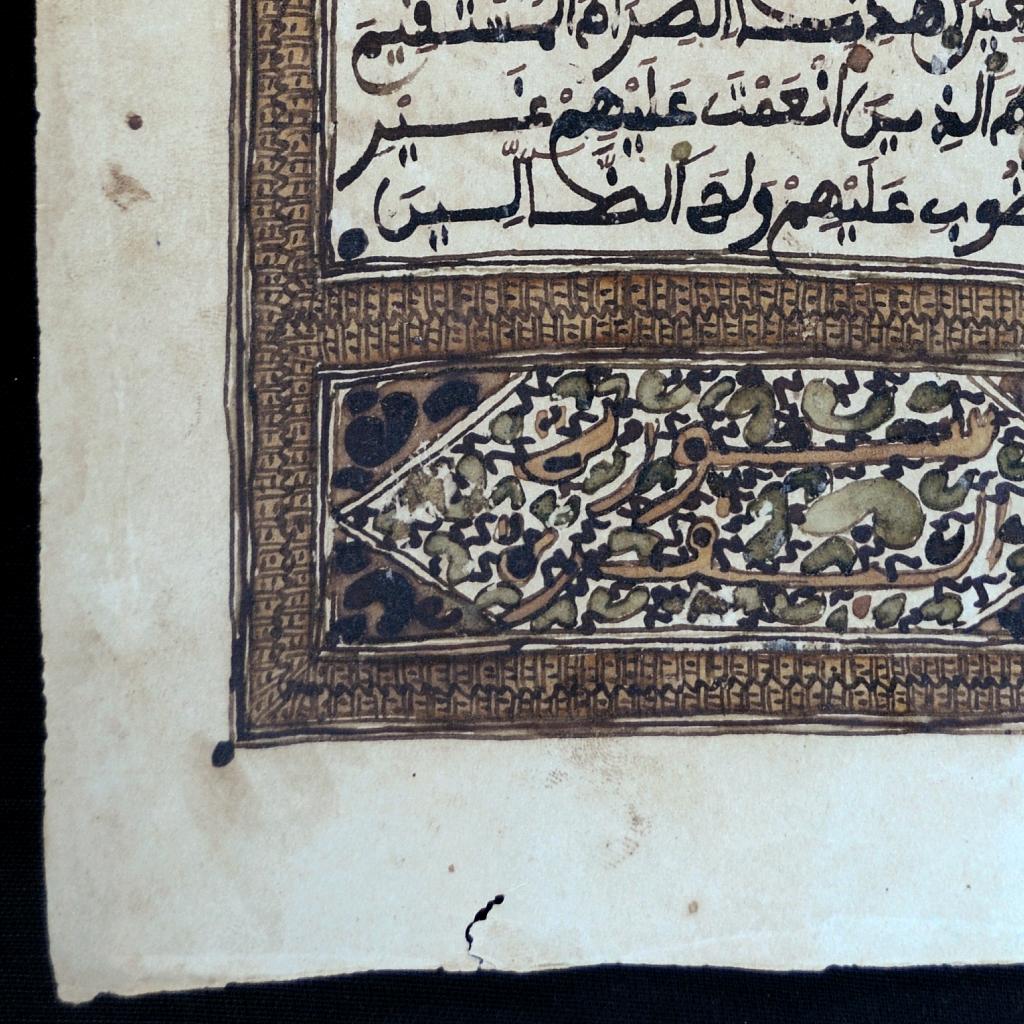 اهدنا الصراط المستقيم
الذِينَ أَنْعَمْتَ عَلَيْهِمْ غَيْرِ
عَلَيْهِمْ وَلَا اَلضَّالِّينَ
سورة